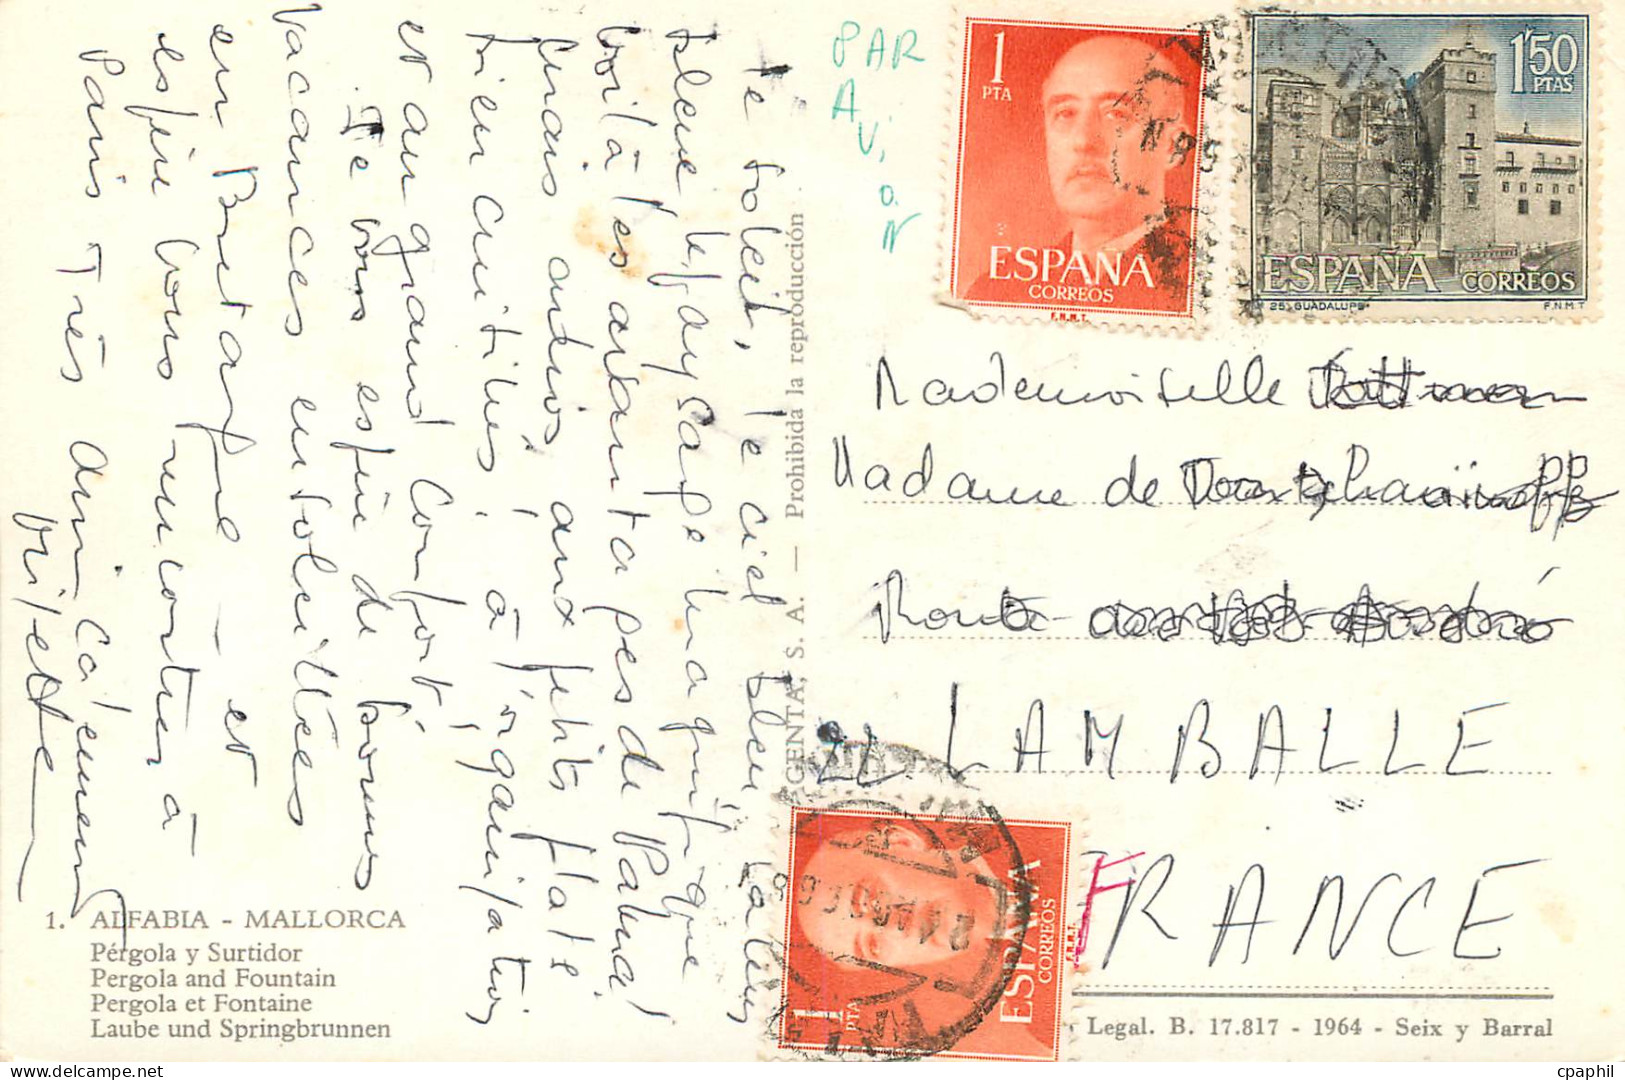 Le soleil, le ciel bleu, la mer
bleue, le paysage magnifique
voilà les avantages de Palma!
Mais adios aux petits plats
bien cuisinés, à l'organisation
et au grand confort!
Je vous espère de bonnes
vacances ensoleillées
en Bretagne — et
espère vous rencontrer à
Paris très amicalement
1. ALFABIA - MALLORCA
Pérgola y Surtidor
Pergola and Fountain
Pergola et Fontaine
Laube und Springbrunnen
GENTA, S. A. — Prohibida la reproducción
PAR
AVION
1
PTA
ESPAÑA
CORREOS
F.N.M.T.
1'50
PTAS
ESPAÑA CORREOS
25) GUADALUPE F.N.M.T
Mademoiselle
Madame de
Route
22 LAMBALLE
FRANCE
1
PTA
ESPAÑA
CORREOS
Legal. B. 17.817 - 1964 - Seix y Barral
cpaphil